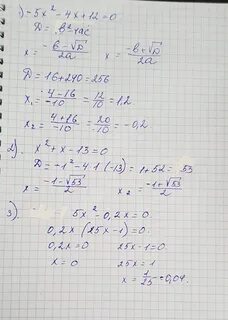 1) -5x² - 4x + 12 = 0
D = b² - 4ac
x = (-b - √D)/2a    x = (-b + √D)/2a
D = 16 + 240 = 256
x₁ = (4 - 16)/-10 = 12/10 = 1,2
x₂ = (4 + 16)/-10 = 20/-10 = -0,2
2) x² + x - 13 = 0
D = -1² - 4·1·(-13) = 1 + 52 = 53
x = (-1 - √53)/2    x₂ = (-1 + √53)/2
3) 5x² - 0,2x = 0
0,2x (25x - 1) = 0
0,2x = 0    25x - 1 = 0
x = 0    25x = 1
x = 1/25 = 0,04.